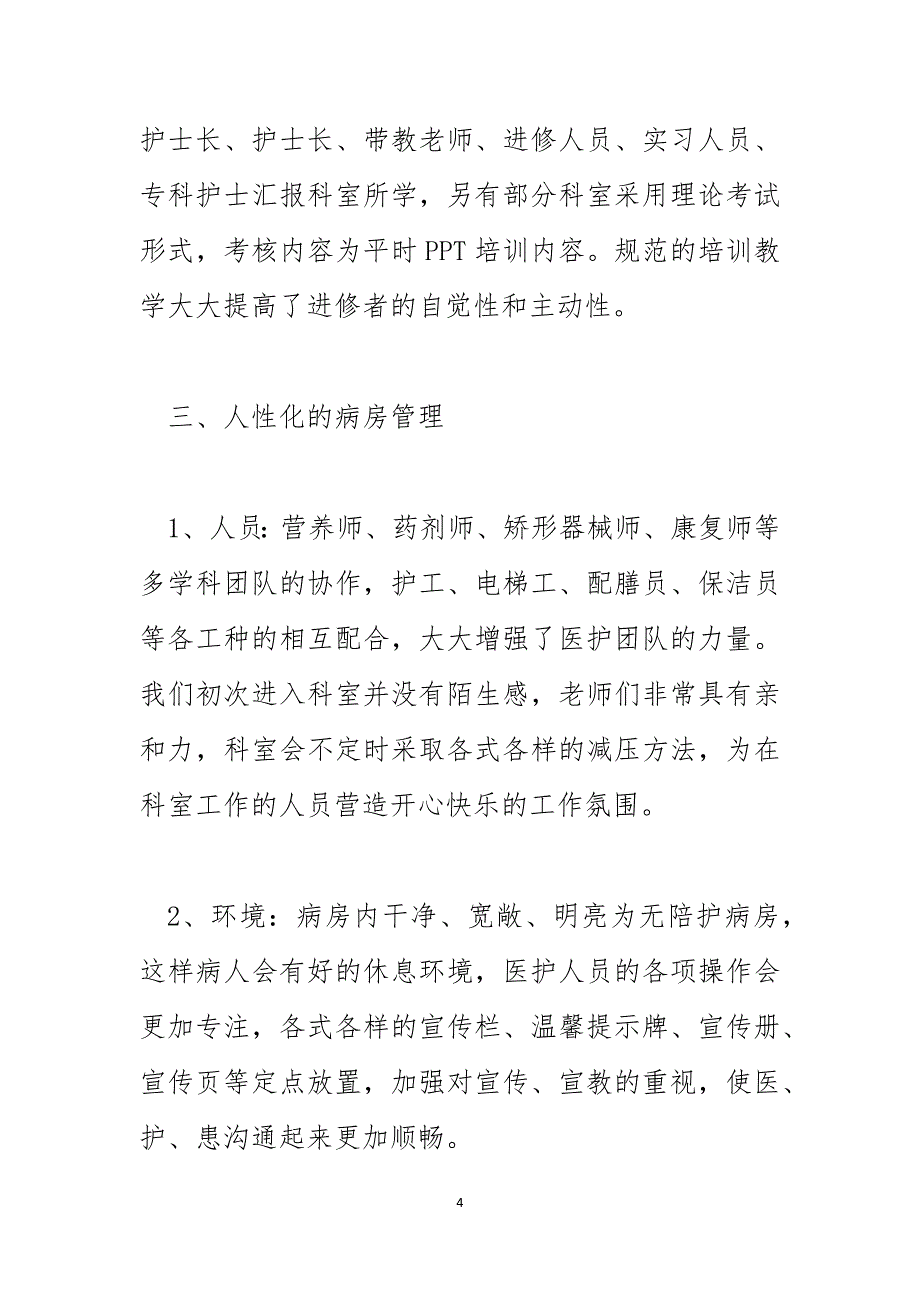 护士长、护士长、带教老师、进修人员、实习人员、
专科护士汇报科室所学，另有部分科室采用理论考试
形式，考核内容为平时 PPT 培训内容。规范的培训教
学大大提高了进修者的自觉性和主动性。
三、人性化的病房管理
1、人员：营养师、药剂师、矫形器械师、康复师等
多学科团队的协作，护工、电梯工、配膳员、保洁员
等各工种的相互配合，大大增强了医护团队的力量。
我们初次进入科室并没有陌生感，老师们非常具有亲
和力，科室会不定时采取各式各样的减压方法，为在
科室工作的人员营造开心快乐的工作氛围。
2、环境：病房内干净、宽敞、明亮为无陪护病房，
这样病人会有好的休息环境，医护人员的各项操作会
更加专注，各式各样的宣传栏、温馨提示牌、宣传册、
宣传页等定点放置，加强对宣传、宣教的重视，使医、
护、患沟通起来更加顺畅。
4